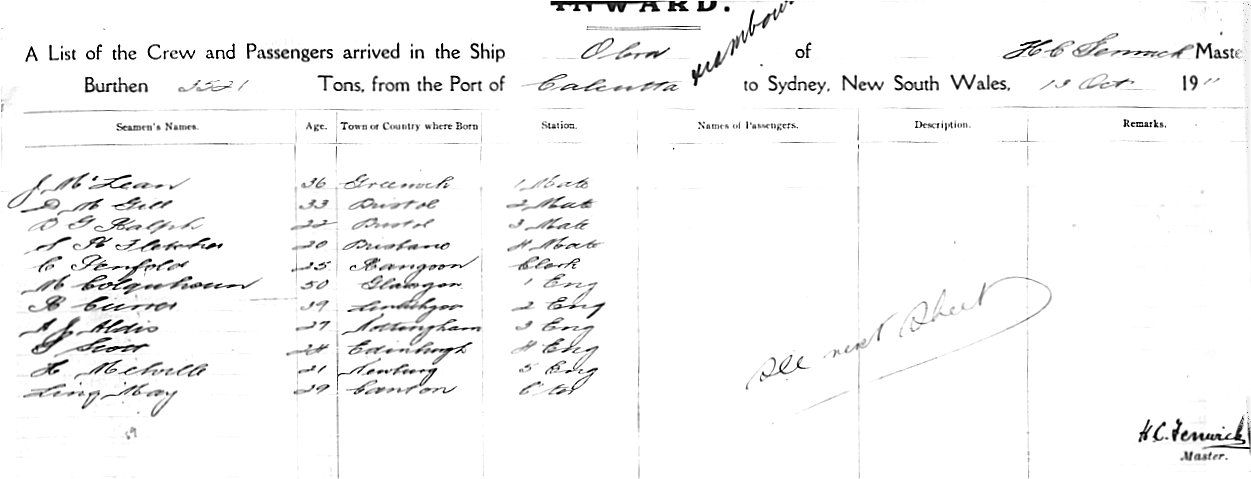 INWARD.
A List of the Crew and Passengers arrived in the Ship Obra of H C Fenwick Maste
Burthen 2521 Tons, from the Port of Calcutta to Sydney, New South Wales, 13 Oct 1911
Seamen's Names. Age. Town or Country where Born Station. Names of Passengers. Description. Remarks.
J McLean 36 Greenock 1 Mate
D M Gill 33 Bristol 2 Mate
D G Ralph 22 Bristol 3 Mate
S H Fletcher 20 Brisbane 4 Mate
C Penfold 25 Rangoon Clerk
M Colquhoun 50 Glasgow 1 Eng
R Currer 39 2 Eng
A J Aldis 27 Nottingham 3 Eng
Scott 24 Edinburgh 4 Eng
H Melville 21 Newburg 5 Eng
Ling May 29 Canton
See next Sheet
59
H. C. Fenwick
Master.